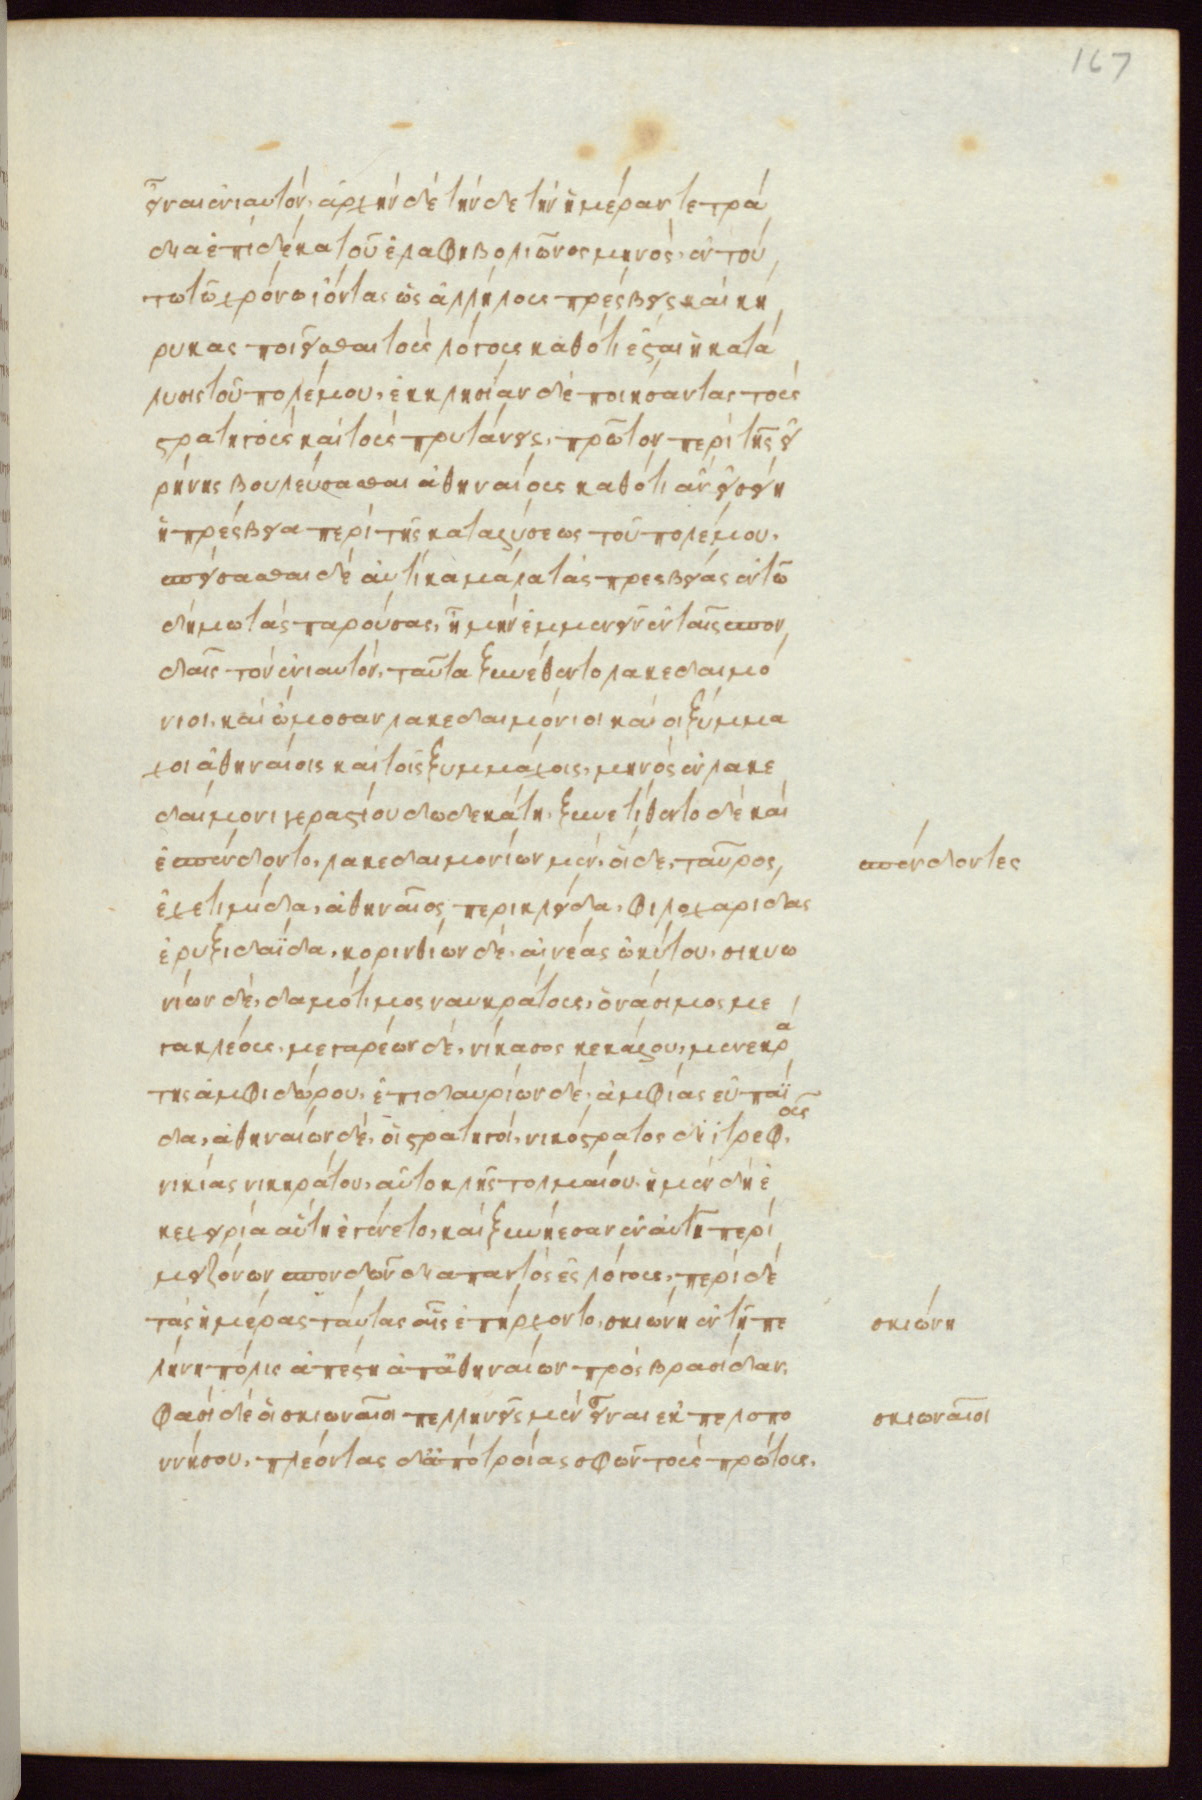 167
εἶναι ἐνιαυτόν, ἄρχην δὲ τήν δε τὴν ἡμέραν τετρά
δια ἐπὶ δέκα τοῦ ἐλαφηβολιῶνος μηνός, ἐν τού
τω τῶ χρόνω ἰόντας ὡς ἀλλήλους πρέσβεις καὶ κή
ρυκας ποιεῖσθαι τοὺς λόγους καθότι ἔσται ἡ κατά
λυσις τοῦ πολέμου, ἐκκλησίαν δὲ ποιήσαντας τοὺς
στρατηγοὺς καὶ τοὺς πρυτάνεις, πρῶτον περὶ τῆς εἰ
ρήνης βουλεύσασθαι ἀθηναίους καθότι ἂν εἰσείη
ἡ πρέσβεια περὶ τῆς καταλύσεως τοῦ πολέμου,
σπείσασθαι δὲ αὐτίκα μάλα τὰς πρεσβείας ἐν τῶ
δήμω τὰς παρούσας, ἦ μὴν ἐμμενεῖν ἐν ταῖς σπον
δαῖς τὸν ἐνιαυτόν, ταῦτα ξυνέθεντο λακεδαιμό
νιοι, καὶ ὤμοσαν λακεδαιμόνιοι καὶ οἱ ξύμμα
χοι ἀθηναίοις καὶ τοῖς ξυμμάχοις, μηνὸς ἐν λακε
δαίμονι γεραστίου δωδεκάτη, ξυνετίθεντο δὲ καὶ
ἐσπένδοντο, λακεδαιμονίων μὲν, οἵδε, ταῦρος,
ἐχετιμίδα, ἀθηναῖος περικλείδα, φιλοχαρίδας
ἐρυξιδαΐδα, κορινθίων δὲ, αἰνέας ὠκύτου, σικυω
νίων δὲ, δαμότιμος ναυκράτους, ὀνάσιμος με
γακλέους, μεγαρέων δὲ, νίκασος κεκάλου, μενεκρά
της ἀμφιδώρου, ἐπιδαυρίων δὲ, ἀμφίας εὐπαϊ
δα, ἀθηναίων δὲ, οἱ στρατηγοὶ, νικόστρατος διιτρεφοῦς,
νικίας νικηράτου, αὐτοκλῆς τολμαίου, ἡ μὲν δὴ ἐ
κεχειρία αὕτη ἐγένετο, καὶ ξυνήεσαν ἐν αὐτῆ περὶ
μειζόνων σπονδῶν διαπαντὸς ἐς λόγους, περὶ δὲ
τὰς ἡμέρας ταύτας αἷς ἐπήρχοντο, σκιώνη ἐν τῆ πε
λήνη πόλις ἀπέστη ἀπ᾽ ἀθηναίων πρὸς βρασίδαν,
φασὶ δὲ οἱ σκιωναῖοι πελληνεῖς μὲν εἶναι ἐκ πελοπο
ννήσου, πλέοντας δ᾽ ἀπὸ τροίας σφῶν τοὺς πρώτους,
σπένδοντες
σκιώνη
σκιωναῖοι